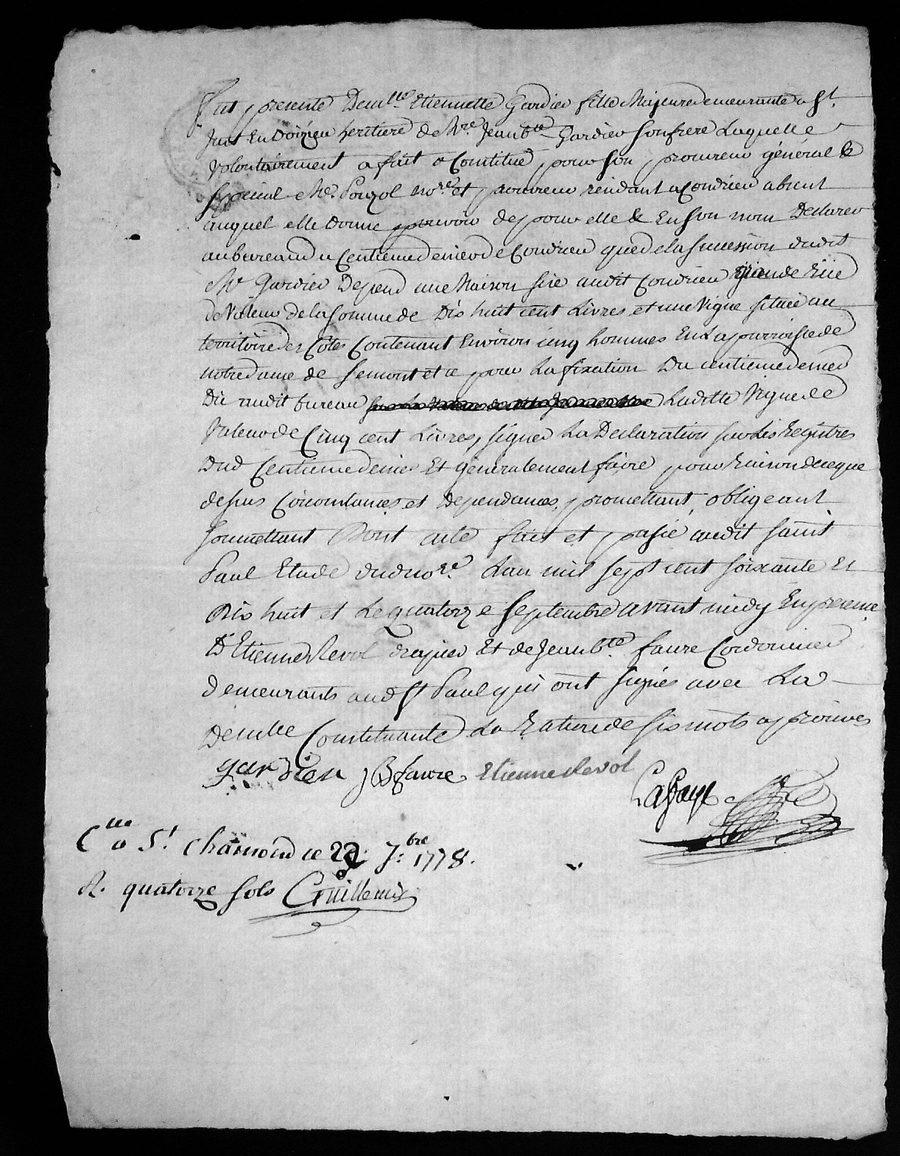 Fut presente Demlle Etiennette Gardier fille Majeure demeurante a St
Just En Doizieu heritiere de Mre Jean bte Gardier son frere Laquelle
volontairement a fait & Constitué pour son procureur général &
spécial Me Pouzol nore et procureur résidant a Condrieu absent
auquel elle Donne pouvoir de pour elle & En son nom Declarer
au bureau du Centieme denier de Condrieu que de la succession dudit
Me Gardier Depend une Maison size audit Condrieu grande Rüe
de Valeur de la somme de Dix huit cent Livres et une Vigne située au
territoire des Côtes Contenant Environ cinq hommes En La parroisse de
notre dame de Semont et ce pour La fixation Du centieme denier
Dû audit bureau Laditte Vigne de
Valeur de Cinq cent Livres, signer La Declaration sur Les Registres
Dud Centieme denier Et généralement faire pour Raison de ce que
dessus Circonstances et dependances, promettant, obligeant
soumettant Dont acte fait et passé audit saint
Paul Etude dud nore. L'an mil sept cent soixante Et
Dix huit et Le quatorze septembre avant midy En presence
D'Etienne Revol drapier Et de Jean bte. faure Cordonnier
demeurants aud St Paul qui ont signés avec La
demlle Constituante La Rature de six mots approuvés
gardien JB faure Etienne Revol
Lafaye
Clle a St chamond ce 22 7.bre 1778.
R. quatorze sols Guillemin